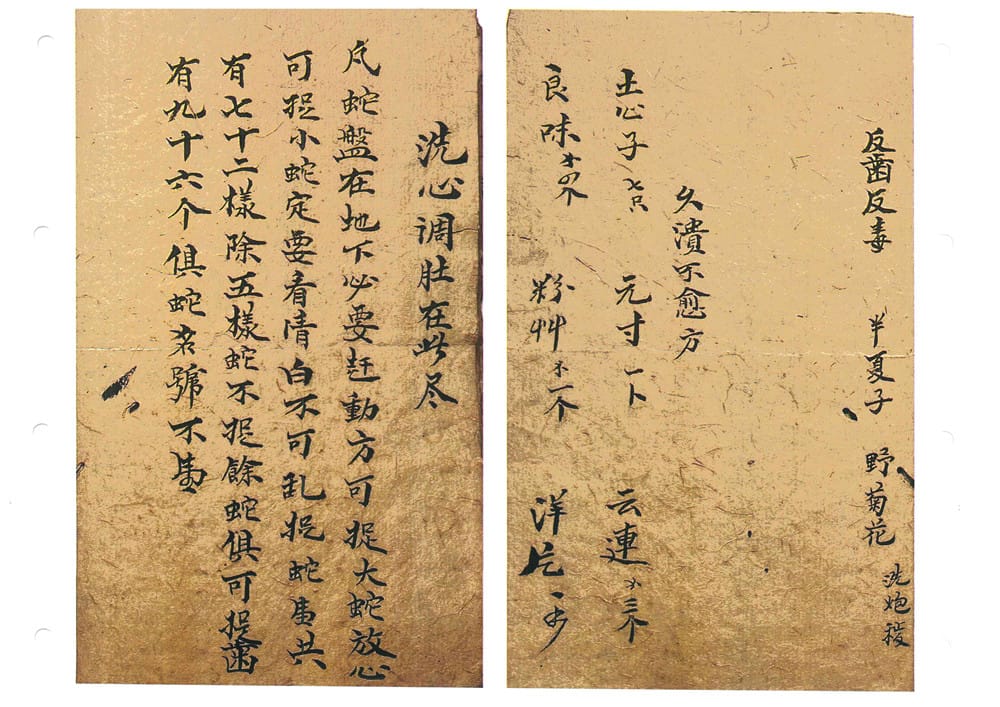 反齒反毒 半夏子 野菊花 洗炮發
久潰不愈方
土心子 七只 元寸 一卜 云連
良味 粉艸 不一个 洋片
洗心调肚在此尽
凡蛇盤在地下必要赶動方可捉大蛇放心
可捉小蛇定要看清白不可乱捉蛇 共
有七十二樣除五樣蛇不捉餘蛇俱可捉齒
有九十六个俱蛇名號不